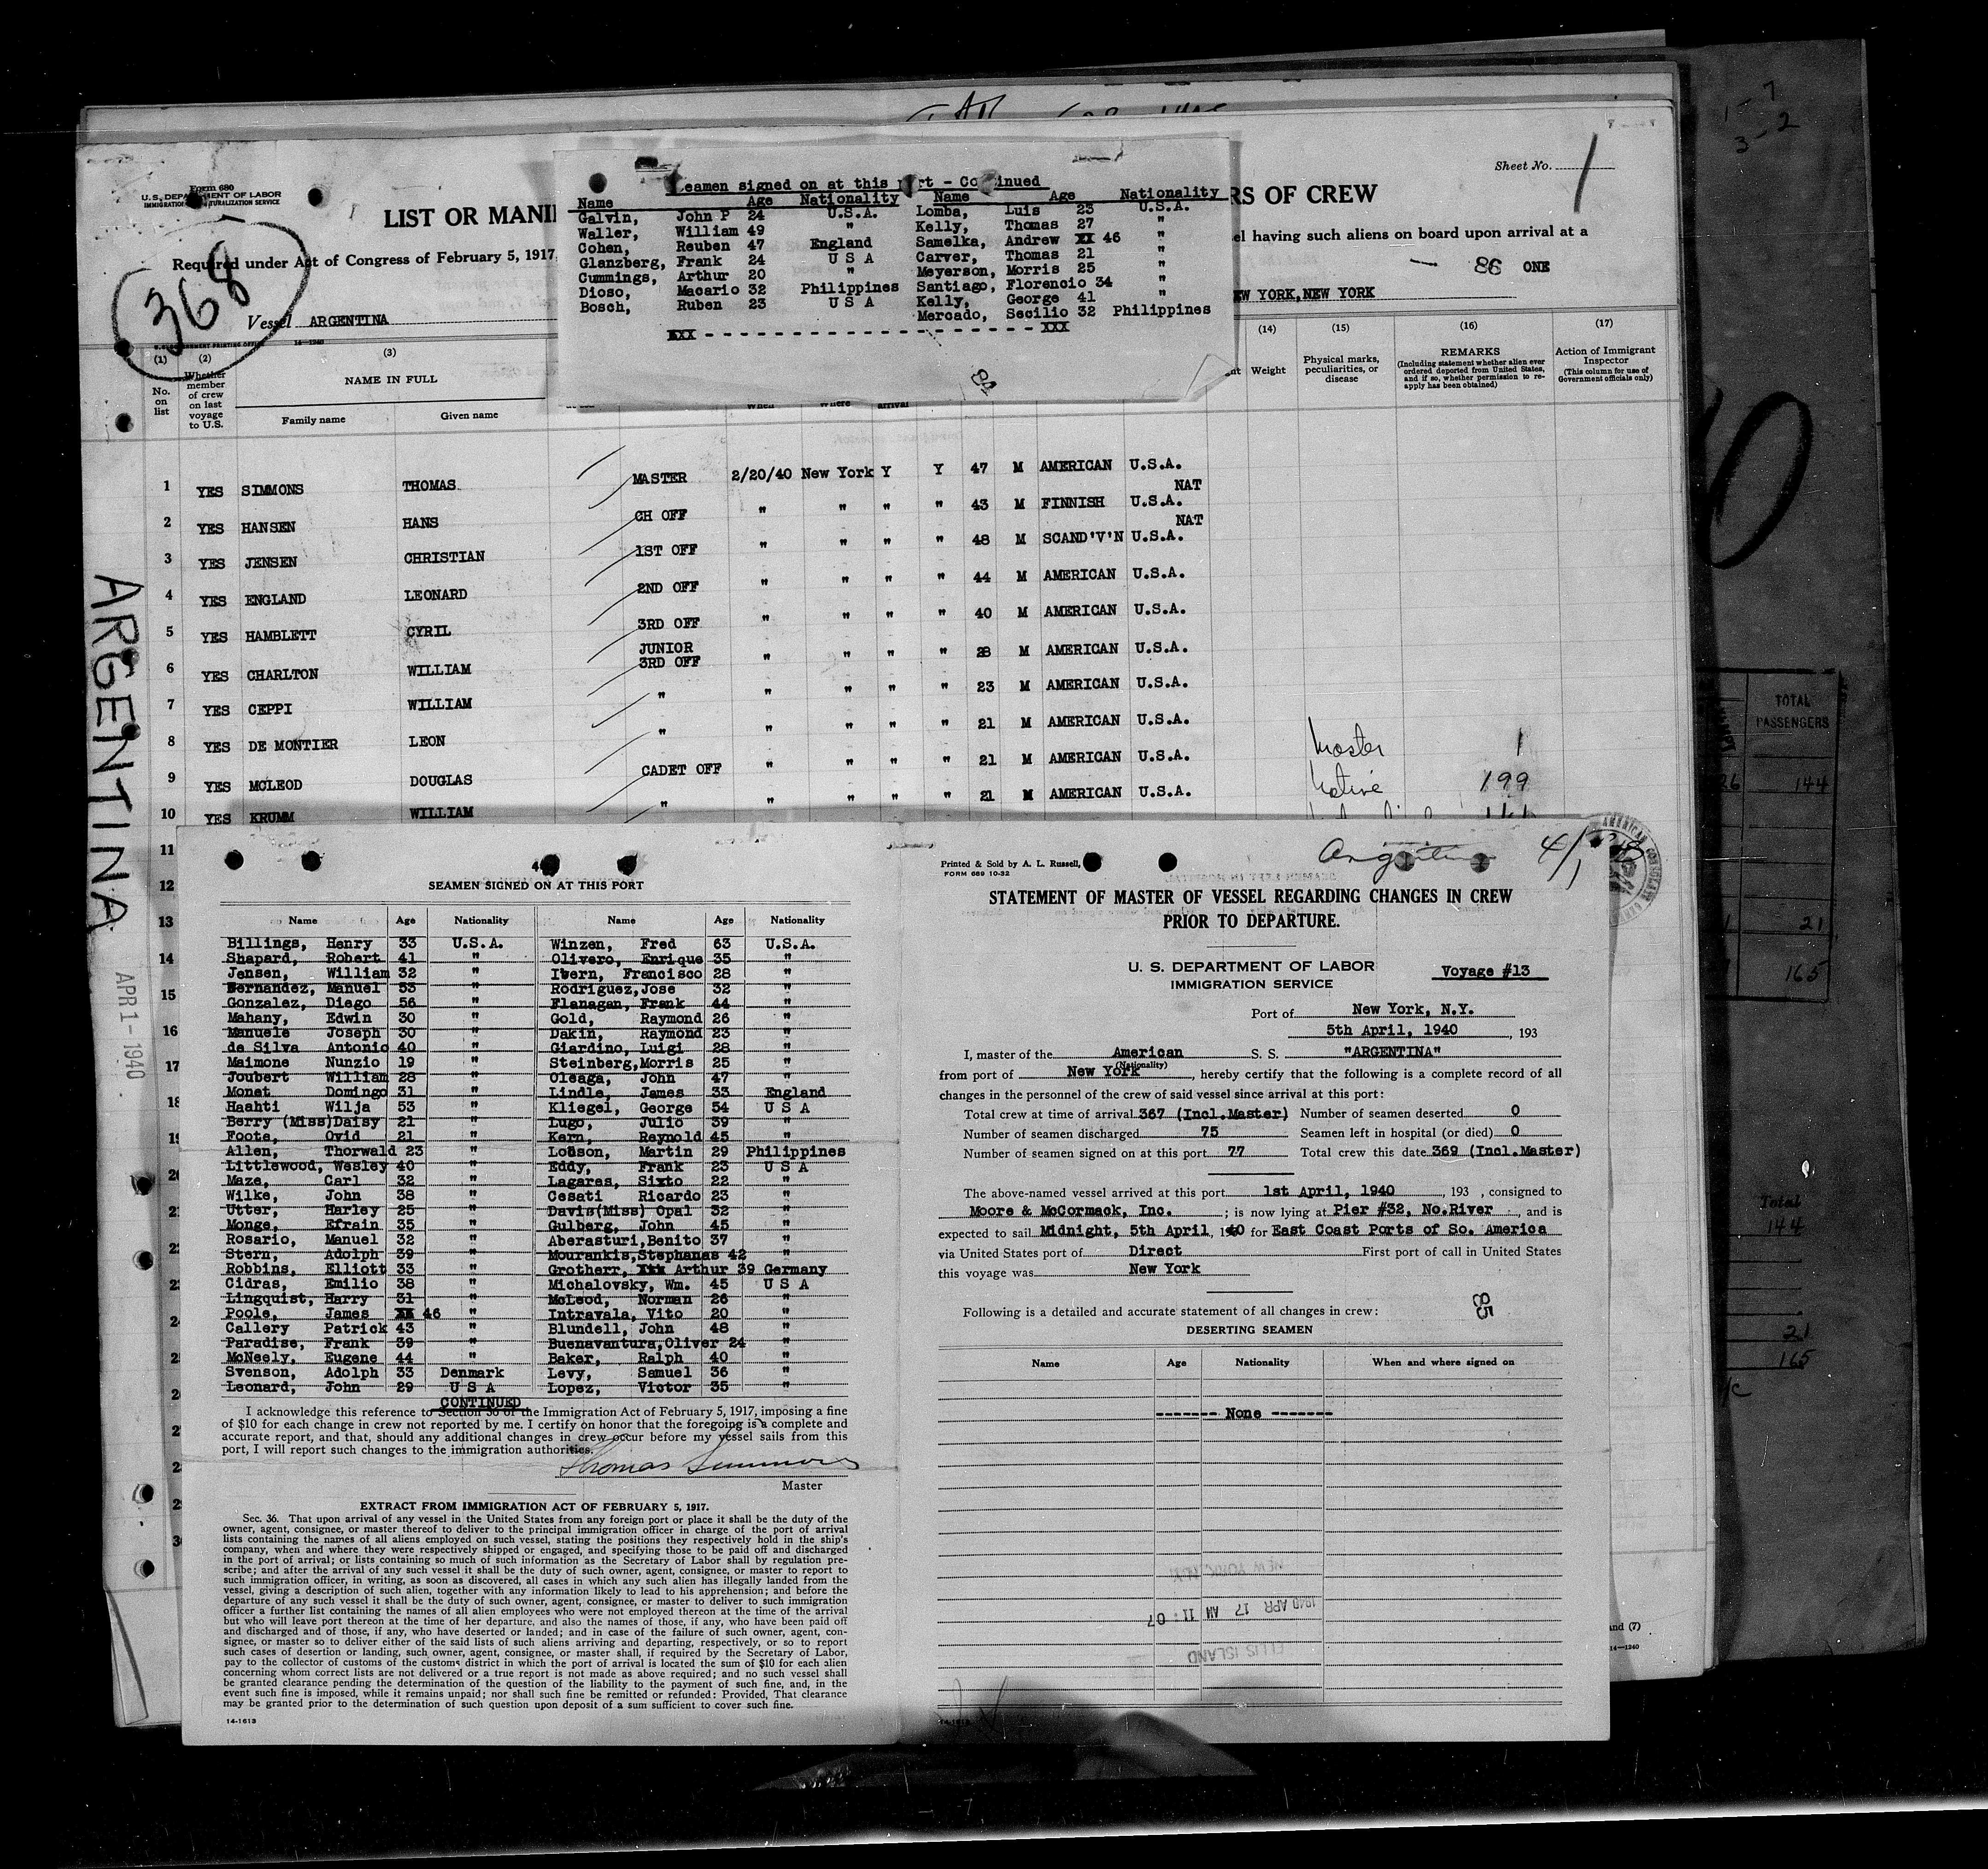 Sheet No. 1
Form 680
U.S. DEPARTMENT OF LABOR
IMMIGRATION NATURALIZATION SERVICE
368
LIST OR MANI
RS OF CREW
Required under Act of Congress of February 5, 1917,
el having such aliens on board upon arrival at a
86 ONE
Vessel ARGENTINA
EW YORK, NEW YORK
eamen signed on at this rt - Co inued
Name Age Nationality Name Age Nationality
Galvin, John P 24 U.S.A. Lomba, Luis 23 U.S.A.
Waller, William 49 " Kelly, Thomas 27 "
Cohen, Reuben 47 England Samelka, Andrew XX 46 "
Glanzberg, Frank 24 U S A Carver, Thomas 21 "
Cummings, Arthur 20 " Meyerson, Morris 25 "
Dioso, Macario 32 Philippines Santiago, Florencio 34 "
Bosch, Ruben 23 U S A Kelly, George 41 "
Mercado, Secilio 32 Philippines
XXX - - - - - - - - - - - - - - - - - - - - XXX
84
(1) (2) (3) (14) (15) (16) (17)
No. on list
Whether member of crew on last voyage to U.S.
NAME IN FULL
Family name Given name
Weight
Physical marks, peculiarities, or disease
REMARKS
(Including statement whether alien ever ordered deported from United States, and if so, whether permission to re-apply has been obtained)
Action of Immigrant Inspector
(This column for use of Government officials only)
1 YES SIMMONS THOMAS MASTER 2/20/40 New York Y Y 47 M AMERICAN U.S.A.
2 YES HANSEN HANS CH OFF " " " " 43 M FINNISH U.S.A. NAT
3 YES JENSEN CHRISTIAN 1ST OFF " " " " 48 M SCAND'V'N U.S.A. NAT
4 YES ENGLAND LEONARD 2ND OFF " " " " 44 M AMERICAN U.S.A.
5 YES HAMBLETT CYRIL 3RD OFF " " " " 40 M AMERICAN U.S.A.
6 YES CHARLTON WILLIAM JUNIOR 3RD OFF " " " " 28 M AMERICAN U.S.A.
7 YES CEPPI WILLIAM " " " " " 23 M AMERICAN U.S.A.
8 YES DE MONTIER LEON " " " " " 21 M AMERICAN U.S.A.
9 YES MCLEOD DOUGLAS CADET OFF " " " " 21 M AMERICAN U.S.A.
10 YES KRUMM WILLIAM " " " " " 21 M AMERICAN U.S.A.
Master 1
Native 199
11
12
13
14
15
16
17
ARGENTINA
APR 1-1940
SEAMEN SIGNED ON AT THIS PORT
Name Age Nationality Name Age Nationality
Billings, Henry 33 U.S.A. Winzen, Fred 63 U.S.A.
Shapard, Robert 41 " Olivero, Enrique 35 "
Jensen, William 32 " Itern, Francisco 28 "
Fernandez, Manuel 53 " Rodriguez, Jose 32 "
Gonzalez, Diego 56 " Flanagan, Frank 44 "
Mahany, Edwin 30 " Gold, Raymond 26 "
Manuele Joseph 30 " Dakin, Raymond 23 "
de Silva Antonio 40 " Giardino, Luigi 28 "
Maimone Nunzio 19 " Steinberg, Morris 25 "
Joubert William 28 " Oleaga, John 47 "
Monet Domingo 31 " Lindle, James 33 England
Haahti Wilja 53 " Kliegel, George 54 U S A
Berry (Miss) Daisy 21 " Lugo, Julio 39 "
Foote, Ovid 21 " Karn, Reynold 45 "
Allen, Thorwald 23 " Lodson, Martin 29 Philippines
Littlewood, Wesley 40 " Eddy, Frank 23 U S A
Maze, Carl 32 " Lagares, Sixto 22 "
Wilke, John 38 " Cesati Ricardo 23 "
Utter, Harley 25 " Davis(Miss) Opal 32 "
Monge, Efrain 35 " Gulberg, John 45 "
Rosario, Manuel 32 " Aberasturi, Benito 37 "
Stern, Adolph 39 " Mourankis, Stephanas 42 "
Robbins, Elliott 33 " Grotherr, XXX Arthur 39 Germany
Cidras, Emilio 38 " Michalovsky, Wm. 45 U S A
Lingquist, Harry 31 " McLeod, Norman 26 "
Poole, James XX 46 " Intravala, Vito 20 "
Callery Patrick 43 " Blundell, John 48 "
Paradise, Frank 39 " Buenavantura, Oliver 24 "
McNeely, Eugene 44 " Baker, Ralph 40 "
Svenson, Adolph 33 Denmark Levy, Samuel 36 "
Leonard, John 29 U S A Lopez, Victor 35 "
CONTINUED
I acknowledge this reference to Section 36 of the Immigration Act of February 5, 1917, imposing a fine
of $10 for each change in crew not reported by me. I certify on honor that the foregoing is a complete and
accurate report, and that, should any additional changes in crew occur before my vessel sails from this
port, I will report such changes to the immigration authorities.
Thomas Simmons
Master
EXTRACT FROM IMMIGRATION ACT OF FEBRUARY 5, 1917.
Sec. 36. That upon arrival of any vessel in the United States from any foreign port or place it shall be the duty of the
owner, agent, consignee, or master thereof to deliver to the principal immigration officer in charge of the port of arrival
lists containing the names of all aliens employed on such vessel, stating the positions they respectively hold in the ship's
company, when and where they were respectively shipped or engaged, and specifying those to be paid off and discharged
in the port of arrival; or lists containing so much of such information as the Secretary of Labor shall by regulation pre-
scribe; and after the arrival of any such vessel it shall be the duty of such owner, agent, consignee, or master to report to
such immigration officer, in writing, as soon as discovered, all cases in which any such alien has illegally landed from the
vessel, giving a description of such alien, together with any information likely to lead to his apprehension; and before the
departure of any such vessel it shall be the duty of such owner, agent, consignee, or master to deliver to such immigration
officer a further list containing the names of all alien employees who were not employed thereon at the time of the arrival
but who will leave port thereon at the time of her departure, and also the names of those, if any, who have been paid off
and discharged and of those, if any, who have deserted or landed; and in case of the failure of such owner, agent, con-
signee, or master so to deliver either of the said lists of such aliens arriving and departing, respectively, or so to report
such cases of desertion or landing, such owner, agent, consignee, or master shall, if required by the Secretary of Labor,
pay to the collector of customs of the customs district in which the port of arrival is located the sum of $10 for each alien
concerning whom correct lists are not delivered or a true report is not made as above required; and no such vessel shall
be granted clearance pending the determination of the question of the liability to the payment of such fine, and, in the
event such fine is imposed, while it remains unpaid; nor shall such fine be remitted or refunded: Provided, That clearance
may be granted prior to the determination of such question upon deposit of a sum sufficient to cover such fine.
14-1613
Printed & Sold by A. L. Russell,
FORM 689 10-32
Argentina 4/1
STATEMENT OF MASTER OF VESSEL REGARDING CHANGES IN CREW
PRIOR TO DEPARTURE.
U. S. DEPARTMENT OF LABOR
IMMIGRATION SERVICE
Voyage #13
Port of New York, N.Y.
5th April, 1940, 193
I, master of the American S. S. "ARGENTINA"
(Nationality)
from port of New York, hereby certify that the following is a complete record of all
changes in the personnel of the crew of said vessel since arrival at this port:
Total crew at time of arrival 367 (Incl.Master) Number of seamen deserted 0
Number of seamen discharged 75 Seamen left in hospital (or died) 0
Number of seamen signed on at this port 77 Total crew this date 369 (Incl.Master)
The above-named vessel arrived at this port 1st April, 1940, 193 , consigned to
Moore & McCormack, Inc. ; is now lying at Pier #32, No.River , and is
expected to sail Midnight, 5th April, 1940 for East Coast Ports of So. America
via United States port of Direct First port of call in United States
this voyage was New York
85
Following is a detailed and accurate statement of all changes in crew:
DESERTING SEAMEN
Name Age Nationality When and where signed on
------- None -------
1940 APR 17 AM 11:07
ELLIS ISLAND
14-1613
and (7)
14-1240
TOTAL PASSENGERS
26 144
21
165
Total
144
21
165